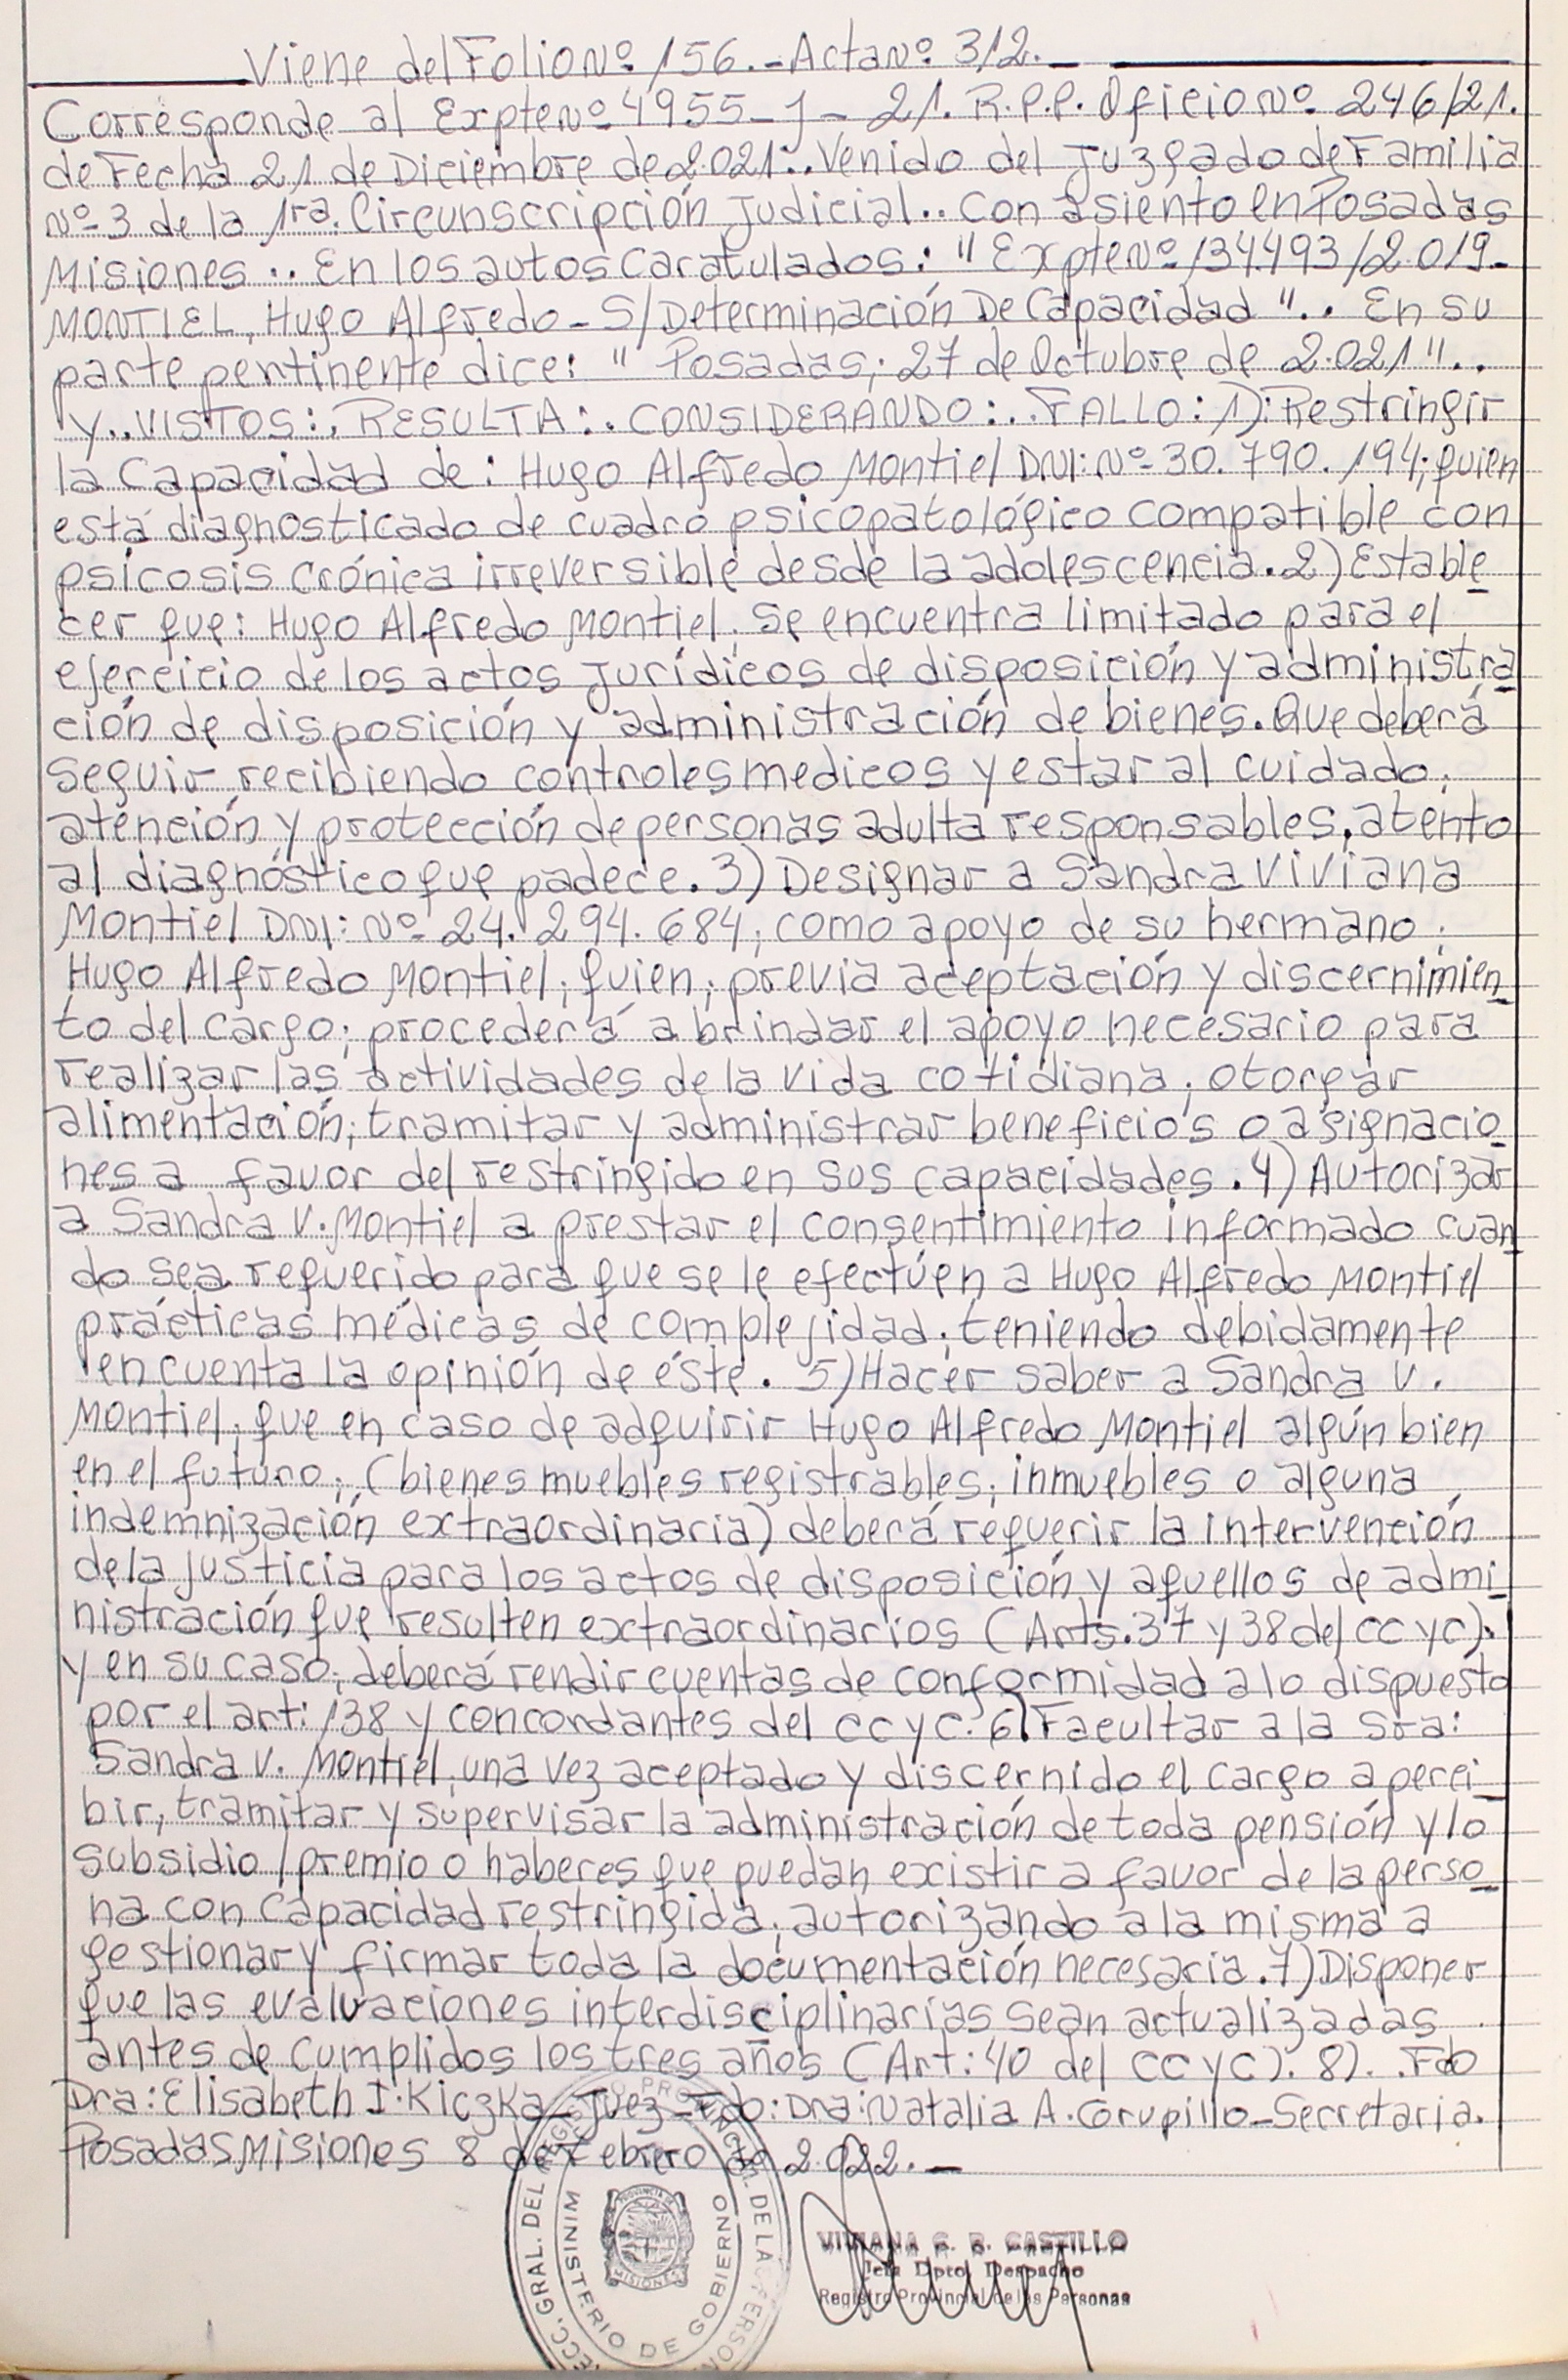 Viene del Folio Nº 156.- Acta Nº 312.-
Corresponde al Expte Nº 4955-J-21. R.P.P. Oficio Nº 246/21.
de Fecha 21 de Diciembre de 2.021.. Venido del Juzgado de Familia
Nº 3 de la 1ra. Circunscripción Judicial.. Con asiento en Posadas
Misiones.. En los autos Caratulados: "Expte Nº 134493/2.019-
MONTIEL, Hugo Alfredo - S/Determinación De Capacidad".. En su
parte pertinente dice: " Posadas; 27 de Octubre de 2.021"..
Y.. VISTOS:. RESULTA:. CONSIDERANDO:.. FALLO: 1): Restringir
la Capacidad de: Hugo Alfredo Montiel DNI: Nº 30.790.194; quien
está diagnosticado de cuadro psicopatológico compatible con
psicosis crónica irreversible desde la adolescencia. 2) Estable
cer que: Hugo Alfredo Montiel; se encuentra limitado para el
ejercicio de los actos jurídicos de disposición y administra
ción de disposición y administración de bienes. Que deberá
seguir recibiendo controles medicos y estar al cuidado;
atención y protección de personas adulta responsables, atento
al diagnóstico que padece. 3) Designar a Sandra Viviana
Montiel DNI: Nº 24.294.684; como apoyo de su hermano;
Hugo Alfredo Montiel; quien; previa aceptación y discernimien
to del cargo; procederá a brindar el apoyo necesario para
realizar las actividades de la vida cotidiana; otorgar
alimentación; tramitar y administrar beneficios o asignacio
nes a favor del restringido en sus capacidades. 4) Autorizar
a Sandra V. Montiel a prestar el consentimiento informado cuan
do sea requerido para que se le efectúen a Hugo Alfredo Montiel
prácticas médicas de complejidad; teniendo debidamente
en cuenta la opinión de éste. 5) Hacer saber a Sandra V.
Montiel; que en caso de adquirir Hugo Alfredo Montiel algún bien
en el futuro; (bienes muebles registrables; inmuebles o alguna
indemnización extraordinaria) deberá requerir la intervención
de la justicia para los actos de disposición y aquellos de admi
nistración que resulten extraordinarios (Arts. 37 y 38 del CCyC).
y en su caso; deberá rendir cuentas de conformidad a lo dispuesto
por el art: 138 y concordantes del CCyC. 6) Facultar a la Sra:
Sandra V. Montiel; una vez aceptado y discernido el cargo a perci
bir, tramitar y supervisar la administración de toda pensión y/o
subsidio/premio o haberes que puedan existir a favor de la perso
na con capacidad restringida; autorizando a la misma a
gestionar y firmar toda la documentación necesaria. 7) Disponer
que las evaluaciones interdisciplinarias sean actualizadas
antes de cumplidos los tres años (Art: 40 del CCyC). 8).. Fdo
Dra: Elisabeth I. Kiczka - Juez - Fdo: Dra: Natalia A. Corupillo - Secretaria.
Posadas Misiones 8 de Febrero de 2.022.-
MINISTERIO DE GOBIERNO
PROVINCIA DE
MISIONES
VIVIANA G. R. CASTILLO
Jefa Dpto. Despacho
Registro Provincial de las Personas